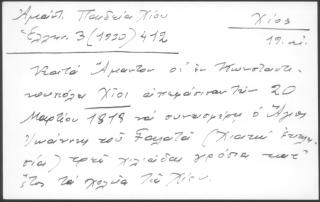 Ἀμάντ. Παιδεία Χίου
Ἑλλην. 3 (1930) 412
Χίος
19. αἰ.
Κατὰ Ἄμαντον οἱ ἐν Κωνσταντι-
νουπόλει Χῖοι ἀπεφάσισαν τὴν 20
Μαρτίου 1818 νὰ συνεισφέρῃ ὁ Ἅγιος
Ἰωάννης τοῦ Γαλατᾶ (Χιακὴ Ἐκκλη-
σία) τρεῖς χιλιάδας γρόσια κατ'
ἔτος τὰ σχολεῖα τῆς Χίου.